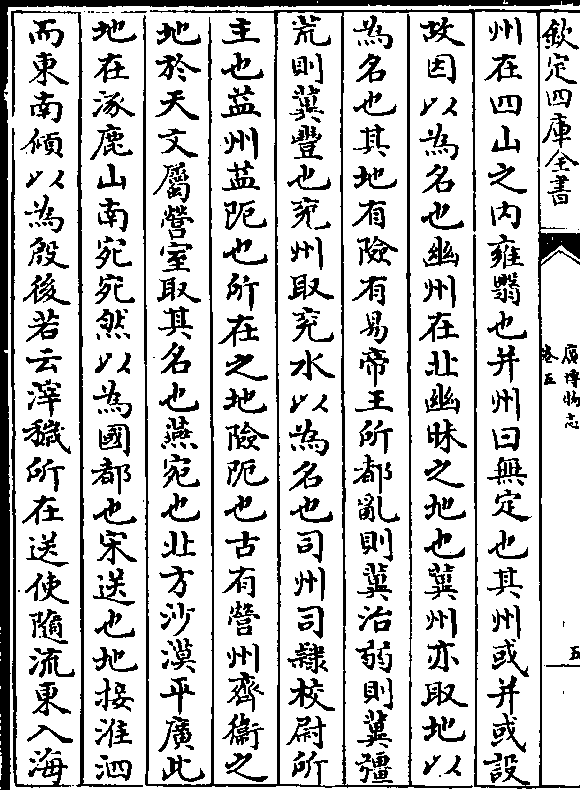 欽定四庫全書
廣博物志
卷五
五
州在四山之内雍翳也并州曰無定也其州或并或設
故因以為名也幽州在北幽昧之地也冀州亦取地以
為名也其地有險有易帝王所都亂則冀治弱則冀彊
荒則冀豐也兖州取兖水以為名也司州司隸校尉所
主也益州益阨也所在之地險阨也古有營州齊衞之
地於天文屬營室取其名也燕宛也北方沙漠平廣此
地在涿鹿山南宛宛然以為國都也宋送也地接淮泗
而東南傾以為殷後若云滓穢所在送使隨流東入海